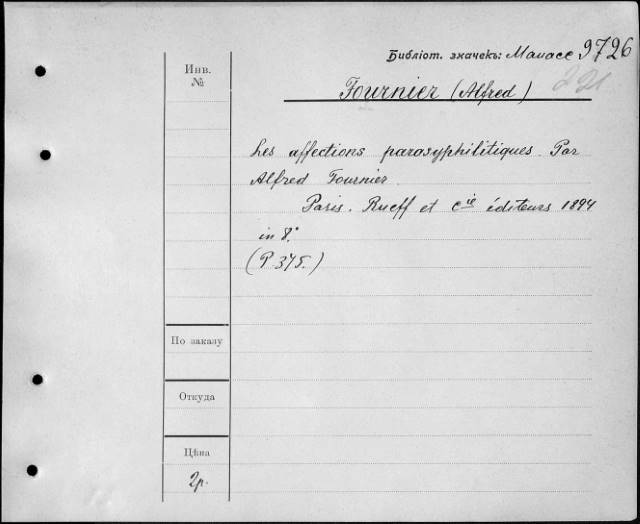 Библіот. значекъ: Манасе 9726
Инв.
№
221
Fournier (Alfred)
Les affections parasyphilitiques. Par
Alfred Fournier.
Paris. Rueff et Cie éditeurs 1894
in 8°
(P 375.)
По заказу
Откуда
Цѣна
2р.